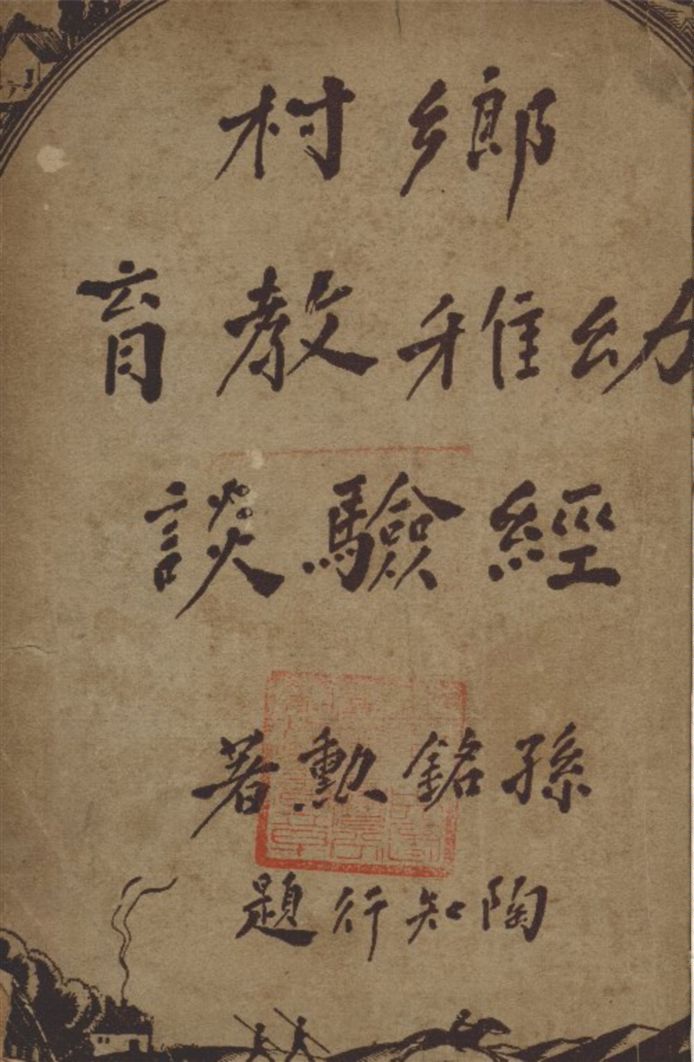 鄉村
幼稚教育
經驗談
孫銘勲著
陶知行題